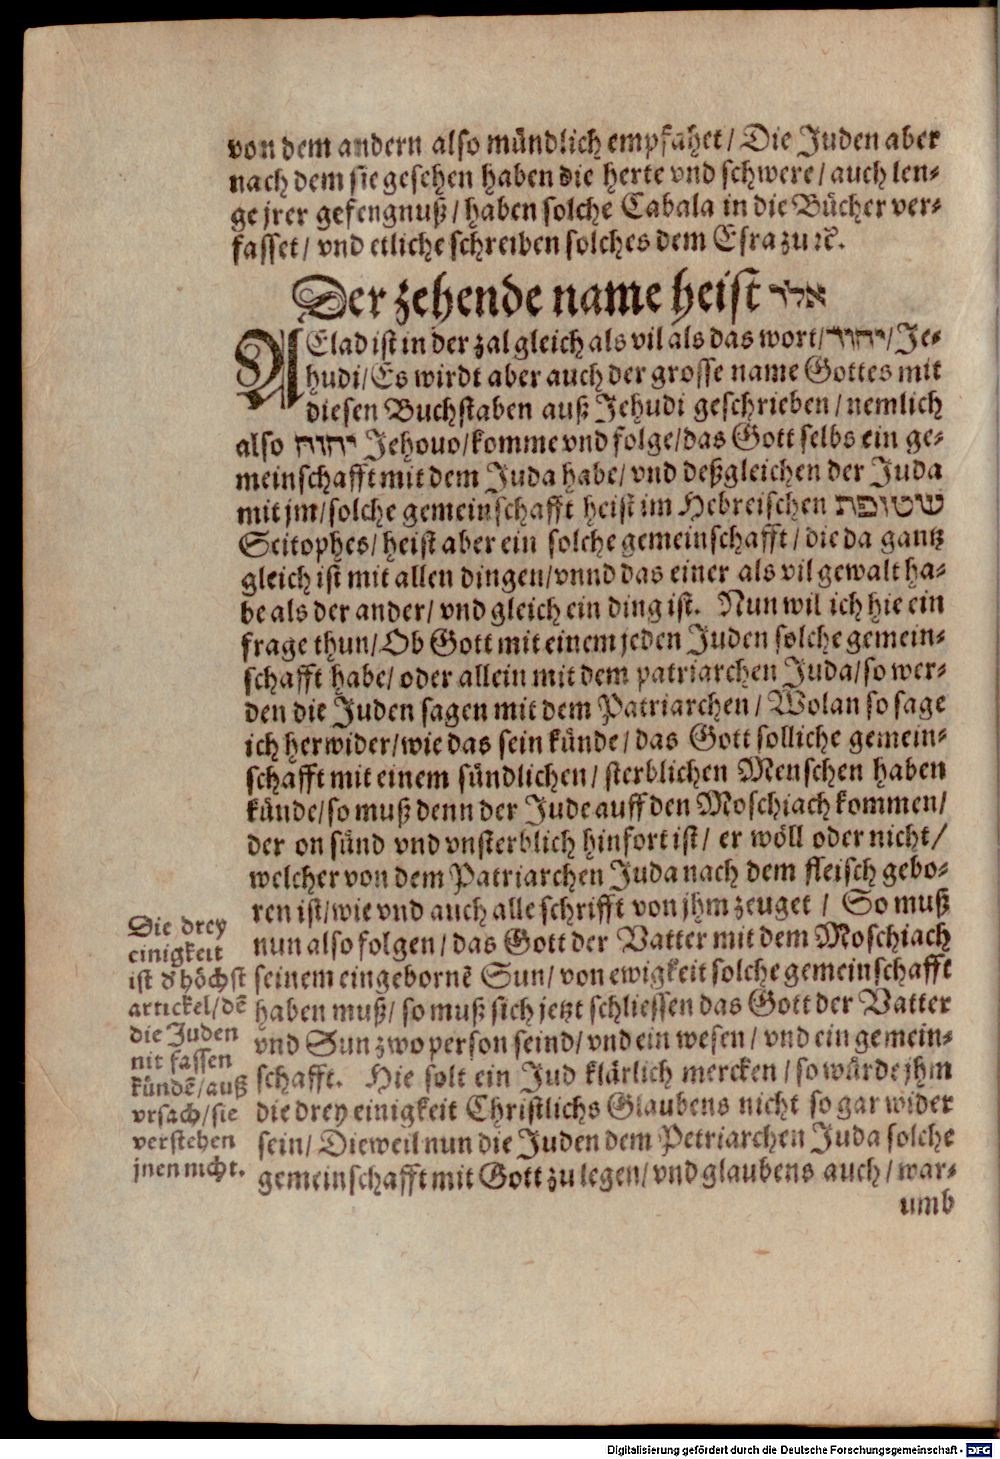 von dem andern also mündlich empfahet / Die Juden aber
nach dem sie gesehen haben die herte vnd schwere / auch len-
ge jrer gefengnuß / haben solche Cabala in die Bücher ver-
fasset / vnd etliche schreiben solches dem Esra zu ꝛc.
Der zehende name heist אלד
AElad ist in der zal gleich als vil als das wort / יהוד / Je-
hudi / Es wirdt aber auch der grosse name Gottes mit
diesen Buchstaben auß Jehudi geschrieben / nemlich
also יהוה Jehouo / komme vnd folge / das Gott selbs ein ge-
meinschafft mit dem Juda habe / vnd deßgleichen der Juda
mit jm / solche gemeinschafft heist im Hebreischen שטופת
Scitophes / heist aber ein solche gemeinschafft / die da gantz
gleich ist mit allen dingen / vnnd das einer als vil gewalt ha-
be als der ander / vnd gleich ein ding ist. Nun wil ich hie ein
frage thun / Ob Gott mit einem jeden Juden solche gemein-
schafft habe / oder allein mit dem patriarchen Juda / so wer-
den die Juden sagen mit dem Patriarchen / Wolan so sage
ich herwider / wie das sein künde / das Gott solliche gemein-
schafft mit einem sündlichen / sterblichen Menschen haben
künde / so muß denn der Jude auff den Moschiach kommen /
der on sünd vnd vnsterblich hinfort ist / er wöll oder nicht /
welcher von dem Patriarchen Juda nach dem fleisch gebo-
ren ist / wie vnd auch alle schrifft von jhm zeuget / So muß
nun also folgen / das Gott der Vatter mit dem Moschiach
seinem eingebornē Sun / von ewigkeit solche gemeinschafft
haben muß / so muß sich jetzt schliessen das Gott der Vatter
vnd Sun zwo person seind / vnd ein wesen / vnd ein gemein-
schafft. Hie solt ein Jud klärlich mercken / so würde jhm
die drey einigkeit Christlichs Glaubens nicht so gar wider
sein / Dieweil nun die Juden dem Petriarchen Juda solche
gemeinschafft mit Gott zu legen / vnd glaubens auch / war-
umb
Die drey
einigkeit
ist d' höchst
artickel / dē
die Juden
nit fassen
kündē / auß
vrsach / sie
verstehen
jnen nicht.
Digitalisierung gefördert durch die Deutsche Forschungsgemeinschaft - DFG